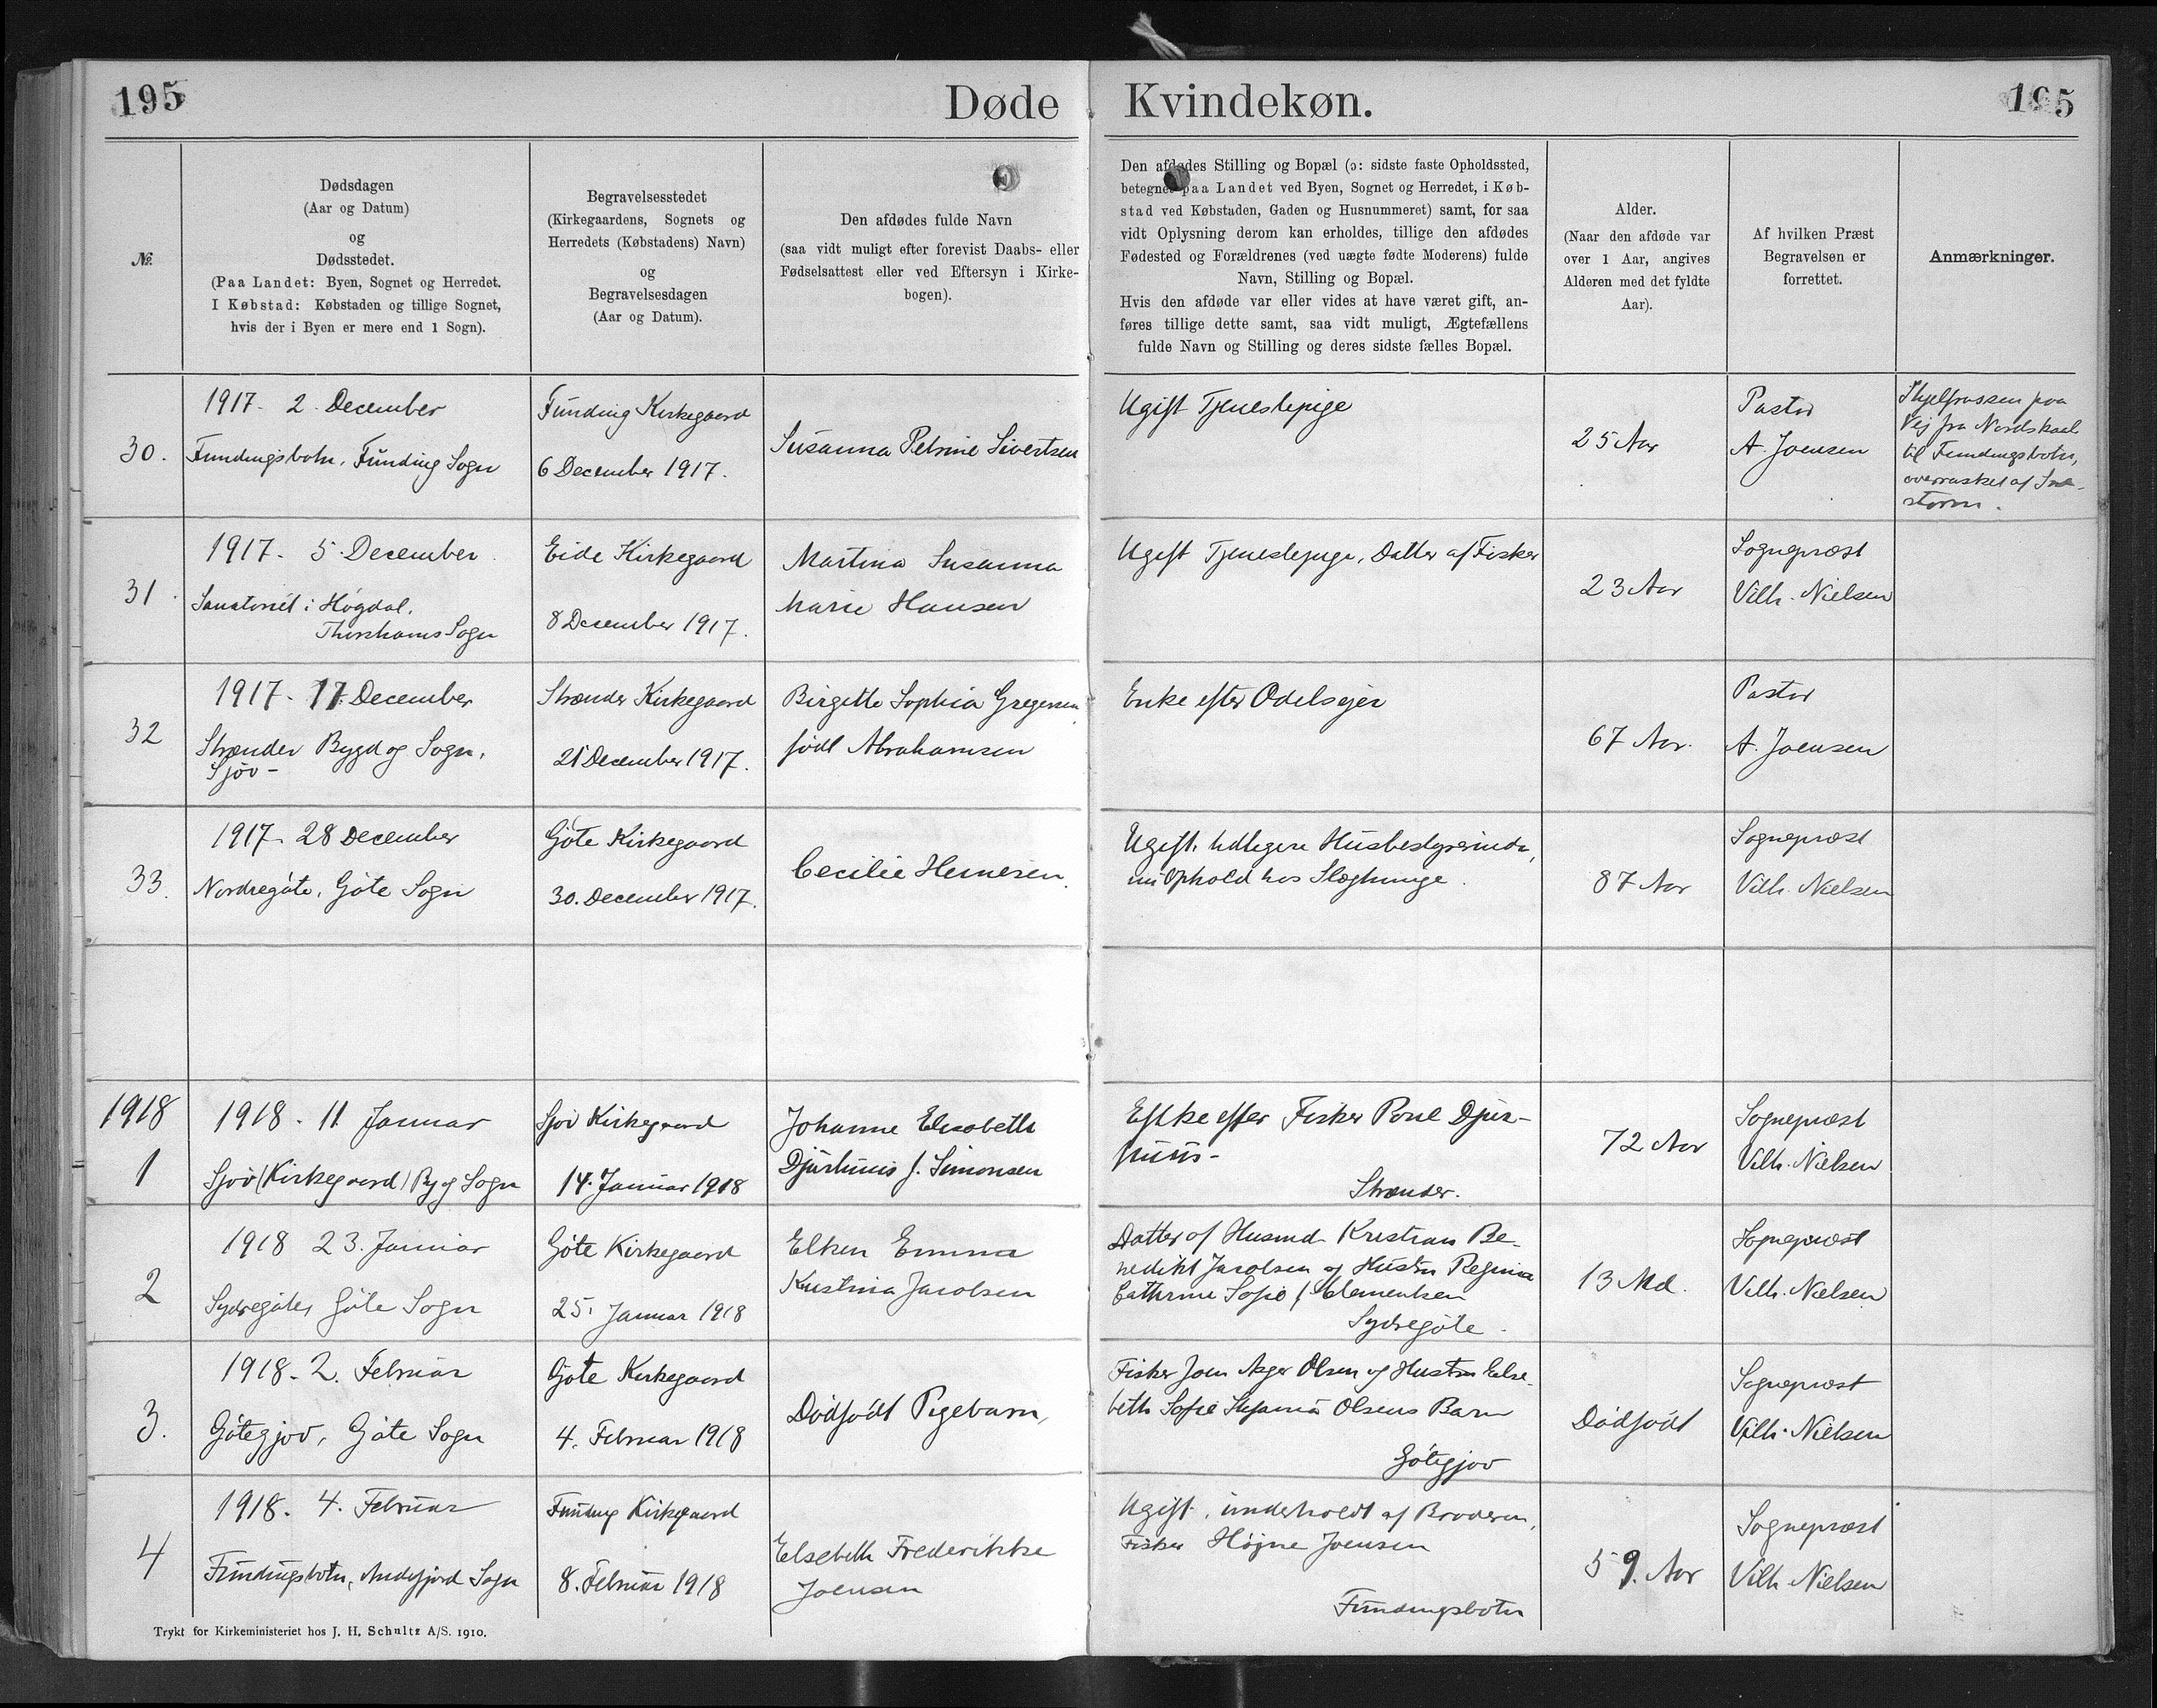 195
Døde Kvindekøn.
195
№
Dødsdagen
(Aar og Datum)
og
Dødsstedet.
(Paa Landet: Byen, Sognet og Herredet.
I Købstad: Købstaden og tillige Sognet,
hvis der i Byen er mere end 1 Sogn).
Begravelsesstedet
(Kirkegaardens, Sognets og
Herredets (Købstadens) Navn)
og
Begravelsesdagen
(Aar og Datum).
Den afdødes fulde Navn
(saa vidt muligt efter forevist Daabs- eller
Fødselsattest eller ved Eftersyn i Kirke-
bogen).
Den afdødes Stilling og Bopæl (ɔ: sidste faste Opholdssted,
betegnet paa Landet ved Byen, Sognet og Herredet, i Køb-
stad ved Købstaden, Gaden og Husnummeret) samt, for saa
vidt Oplysning derom kan erholdes, tillige den afdødes
Fødested og Forældrenes (ved uægte fødte Moderens) fulde
Navn, Stilling og Bopæl.
Hvis den afdøde var eller vides at have været gift, an-
føres tillige dette samt, saa vidt muligt, Ægtefællens
fulde Navn og Stilling og deres sidste fælles Bopæl.
Alder.
(Naar den afdøde var
over 1 Aar, angives
Alderen med det fyldte
Aar).
Af hvilken Præst
Begravelsen er
forrettet.
Anmærkninger.
30.
1917. 2. December
Fundingsbotn, Funding Sogn
Funding Kirkegaard
6 December 1917.
Susanna Petrine Sivertsen
Ugift Tjenestepige
25 Aar
Pastor
A. Joensen
paa
Vej fra Nordskaale
til Fundingsbotn,
overrasket af Sne-
storm.
31
1917. 5. December.
Sanatoriet i Høgdal,
Thorshavns Sogn
Eide Kirkegaard
8 December 1917.
Martina Susanna
Marie Hansen
Ugift Tjenestepige, Datter af Fisker
23 Aar
Sognepræst
Vilh. Nielsen
32
1917. 17. December
Strænder Bygd og Sogn,
Sjóv-
Strænder Kirkegaard
21 December 1917.
Birgitte Sophia Gregersen,
født Abrahamsen
Enke efter Odelsejer
67 Aar.
Pastor
A. Joensen
33.
1917. 28 December
Nordregøte, Gøte Sogn
Gøte Kirkegaard
30. December 1917.
Cecilie Heinesen.
Ugift, tidligere Husbestyrerinde,
nu Ophold hos Slægtninge.
87 Aar
Sognepræst
Vilh. Nielsen
1918
1
1918. 11 Januar
Sjóv (Kirkegaard) By og Sogn
Sjóv Kirkegaard
14. Januar 1918
Johanne Elisabeth
Djurhuus f. Simonsen
Enke efter Fisker Poul Djur-
huus-
Strænder.
72 Aar
Sognepræst
Vilh. Nielsen
2
1918 23. Januar
Sydregøte, Gøte Sogn
Gøte Kirkegaard
25. Januar 1918
Elken Emma
Kristina Jacobsen
Datter af Husmd. Kristian Be-
nedikt Jacobsen og Hustru Regina
Cathrine Sofie f. Clementsen
Sydregøte.
13 Md.
Sognepræst
Vilh. Nielsen
3.
1918. 2. Februar
Gøtegjov, Gøte Sogn
Gøte Kirkegaard
4. Februar 1918
Dødfødt Pigebarn,
Fisker Joen Olsen og Hustru Else-
beth Sofie Olsens Barn
Gøtegjov
Dødfødt
Sognepræst
Vilh. Nielsen
4
1918. 4. Februar
Fundingsbotn, Andefjord Sogn
Funding Kirkegaard
8. Februar 1918
Elsebeth Frederikke
Joensen
Ugift, underholdt af Broderen,
Fisker Højne Joensen
Fundingsbotn
59. Aar
Sognepræst
Vilh Nielsen
Trykt for Kirkeministeriet hos J. H. Schultz A/S. 1910.